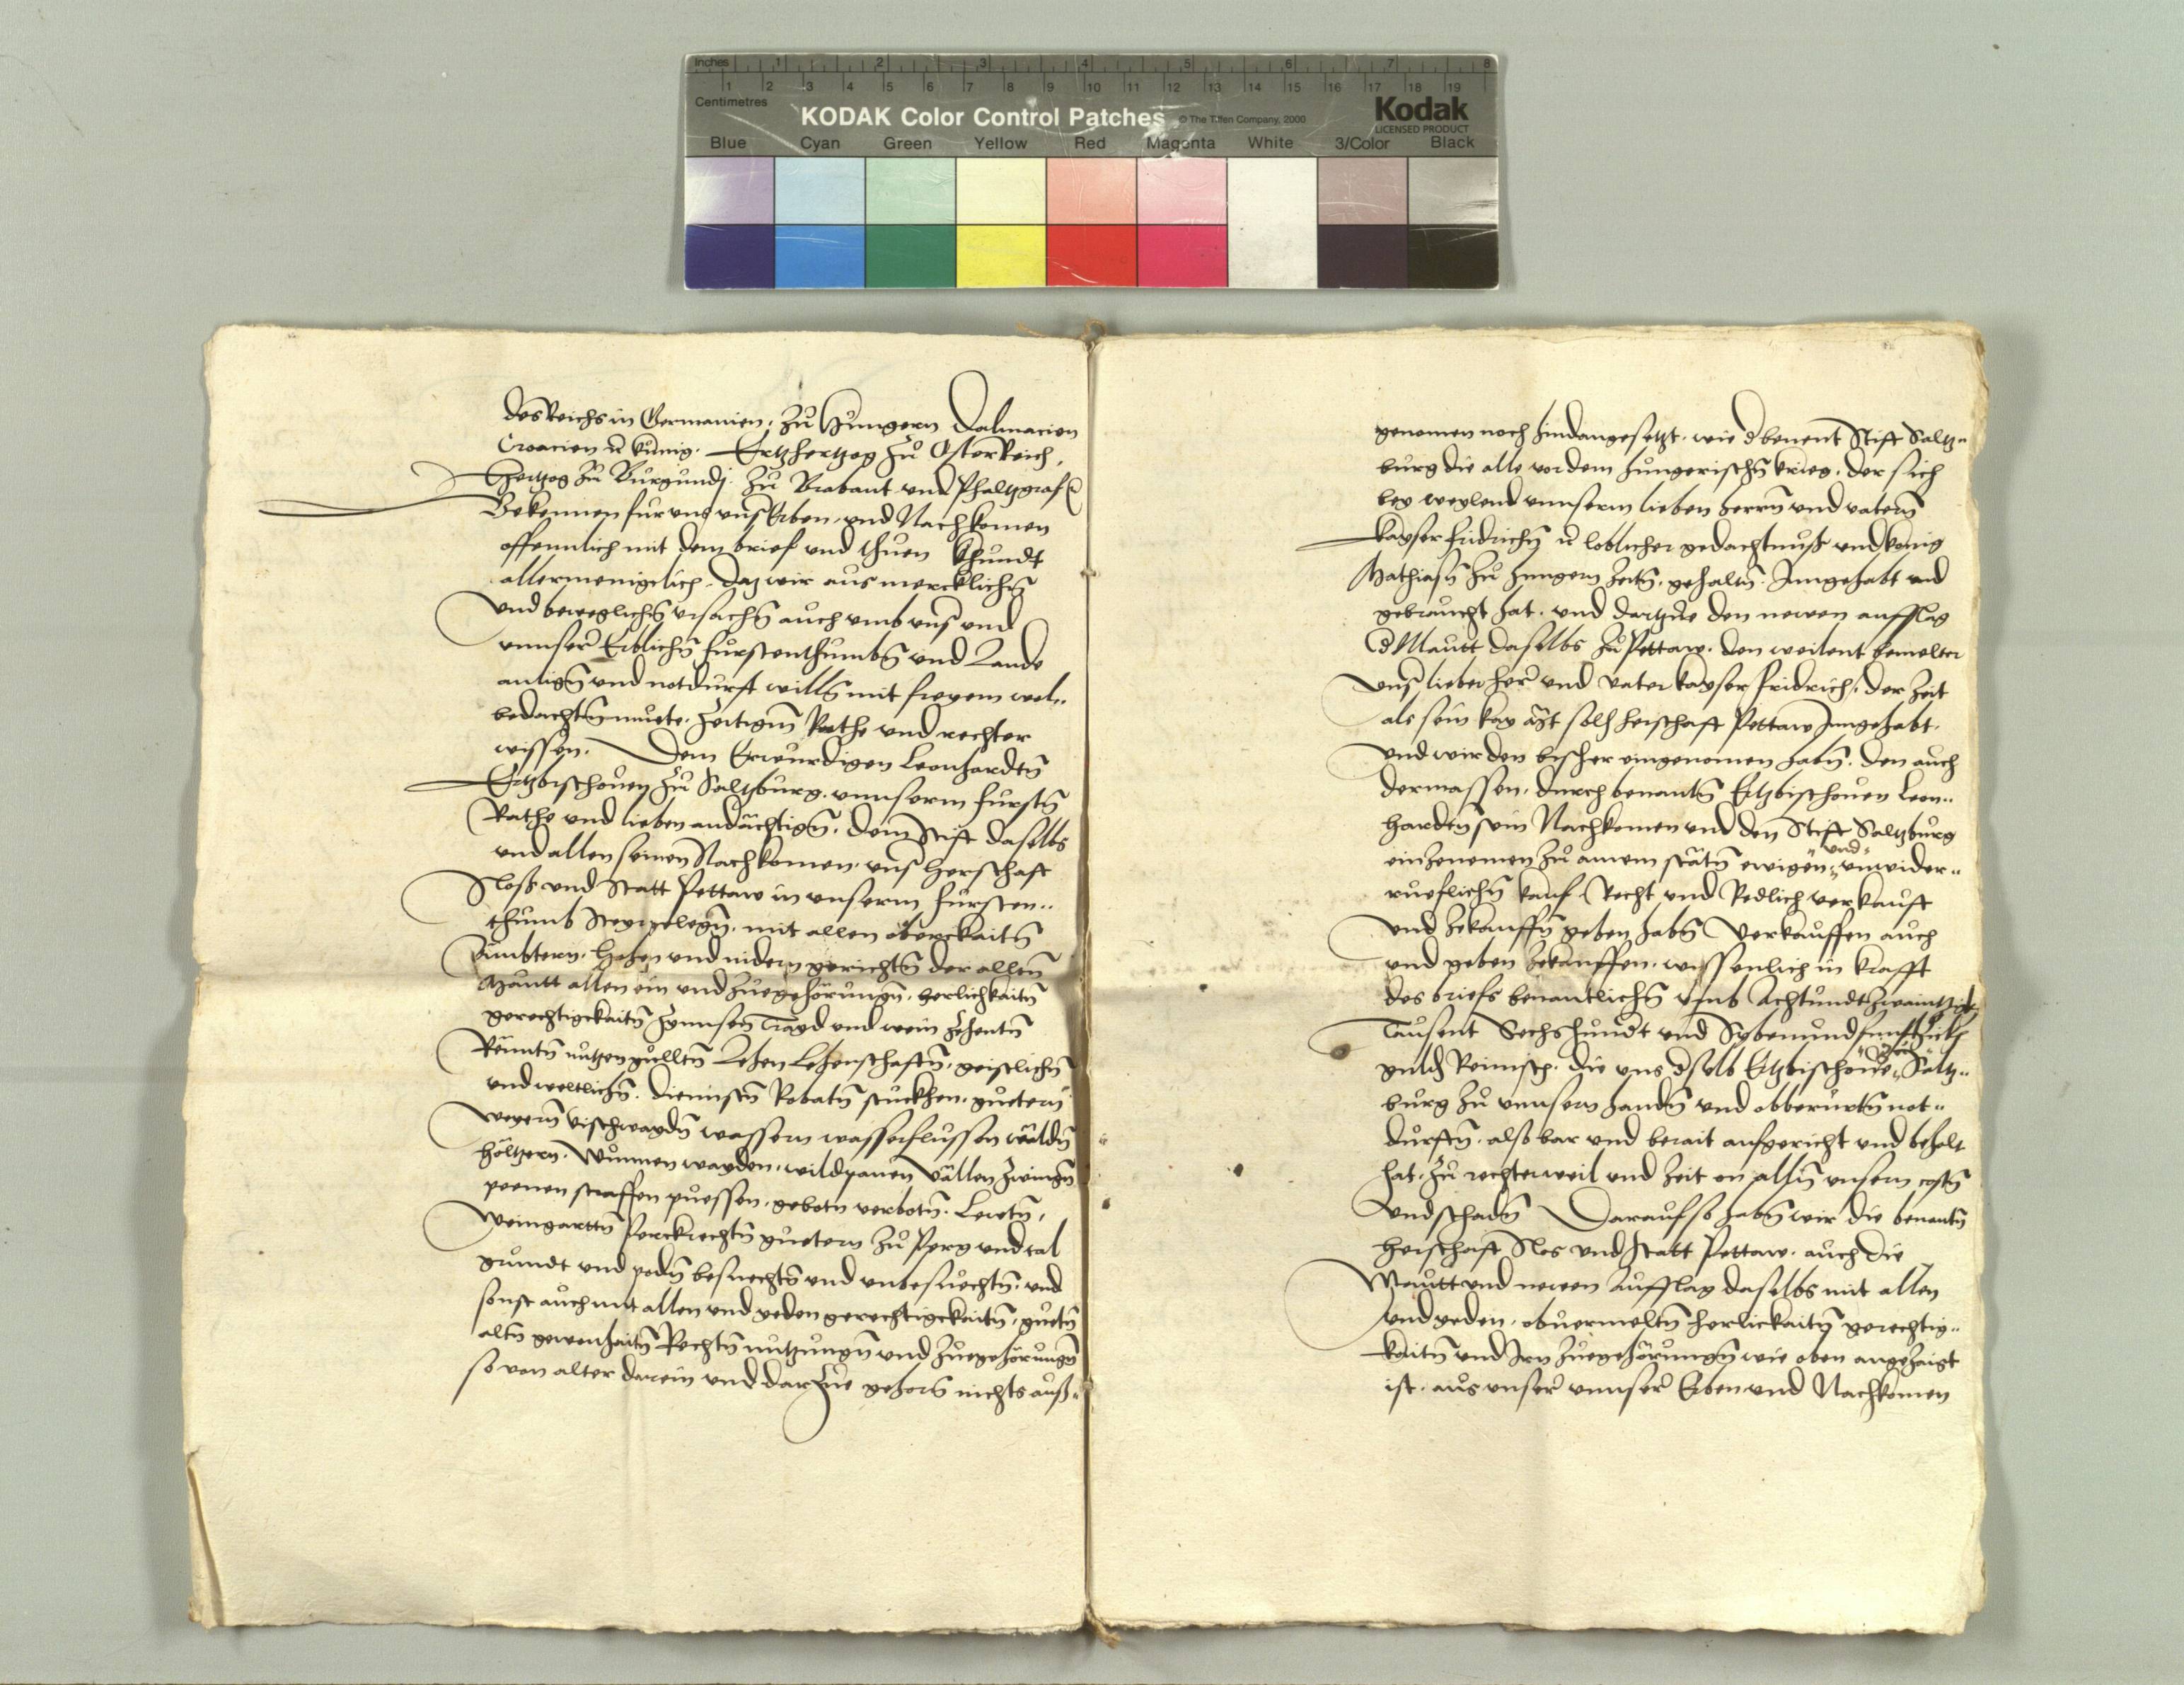 Inches 1 2 3 4 5 6 7 8
Centimetres 1 2 3 4 5 6 7 8 9 10 11 12 13 14 15 16 17 18 19
KODAK Color Control Patches © The Tiffen Company, 2000 Kodak
LICENSED PRODUCT
Blue Cyan Green Yellow Red Magenta White 3/Color Black
des Reichs in Germanien, zu Hungern Dalmacien
Croacien kunig. Ertzhertzog zu Osterreich,
Hertzog zu Burgundj. zu Brabant und Phaltzgraf
Bekennen fur uns uns Erben, und Nachkomen
offennlich mit dem brief und thuen khundt
allermenigclich. daz wir aus mercklichn
und beweglichn ursachn auch umb uns und
unnser Erblichn furstenthumbn und Lande
anlign und notdurft willn mit freyem wol„
bedachtn muete. zeitigm Rathe und rechter
wissen. Dem Erwurdigen Leonhardtn
Ertzbischouen zu Saltzburg. unnserm furstn
Rathe und lieben andächtign. dem Stift daselbs
und allen seinen Nachkomen, uns herschaft
Sloss und Statt Pettaw in unserm fursten„
thumb Steyr gelegn, mit allen oberckaitn
Ämbtern. hohen und nidern gerichtn der allen
Mautt allen ein und zuegehörungn, herlichkaitn
gerechtigckaitn Zynnsen Trayd und wein Zehentn
Renntn nutzen gulltn Lehen Lehenschaftn, geistlichn
und weltlichn. diennstn Robatn stuckhen, guetern
weyern vischwaydn wassern wasserflussen wäldn
höltzern. Wunnen wayden, wildpanen Vällen Zwingn
peenen straffen puessen, gebotn verbotn. Lewtn,
Weingarttn Perckrechtn guetern zu Perg und tal
grundt und podn besuechtn und unbesuechtn, und
sonst auch mit allen und yeden gerechtigckaitn, guetn
altn gewonhaitn Rechtn nutzungn und zuegehörungn
so von alter darein und darzue gehorn nichts auß„
genomen noch hindangesetzt. wie d benent Stift Saltz„
burg die alle vor dem hungerischn krieg, der sich
bey weylend unnserm lieben herrn und vatern
kayser fridrichn loblicher gedachtnuss und konig
Mathiasn zu hungern zeitn, gehaltn. Inngehabt und
gebraucht hat. und dartzue den newen aufflag
d Mautt daselbs zu Pettaw. den weilent bemelter
uns lieber her und vater kayser fridrich, der zeit
als sein kay solh herschaft Pettaw Inngehabt.
und wir den bisher eingenomen habn. den auch
dermassen, durch benantn Ertzbischouen Leon„
harden sein Nachkomen und den Stift Saltzburg
einzenemen zu ainem stätn ewigen und unwider„
rueflichn kauf Recht und Redlich verkauft
und zekauffn geben habn Verkauffen auch
und geben zekauffen, wissenlich in krafft
des briefs benantlichn umb Achtundzwaintzigk
Tausent Sechshundt und Sybenundfunfftzickh
guldn Reinisch. die uns dselb Ertzbischoue Saltz„
burg zu unnsern handn und obberürtn not„
durftn. also bar und berait aufgericht und bezalt
hat. zu rechter weil und zeit on alln unsern costn
und schadn Darauf so habn wir die benantn
herschaft Slos und Statt Pettaw. auch die
Mautt und newen Aufflag daselbs mit allen
und yeden, obuermeltn herlickaitn gerechtig„
kaitn und Irn zuegehörungn wie oben angezaigt
ist. aus unser unnser Erben und Nachkomen